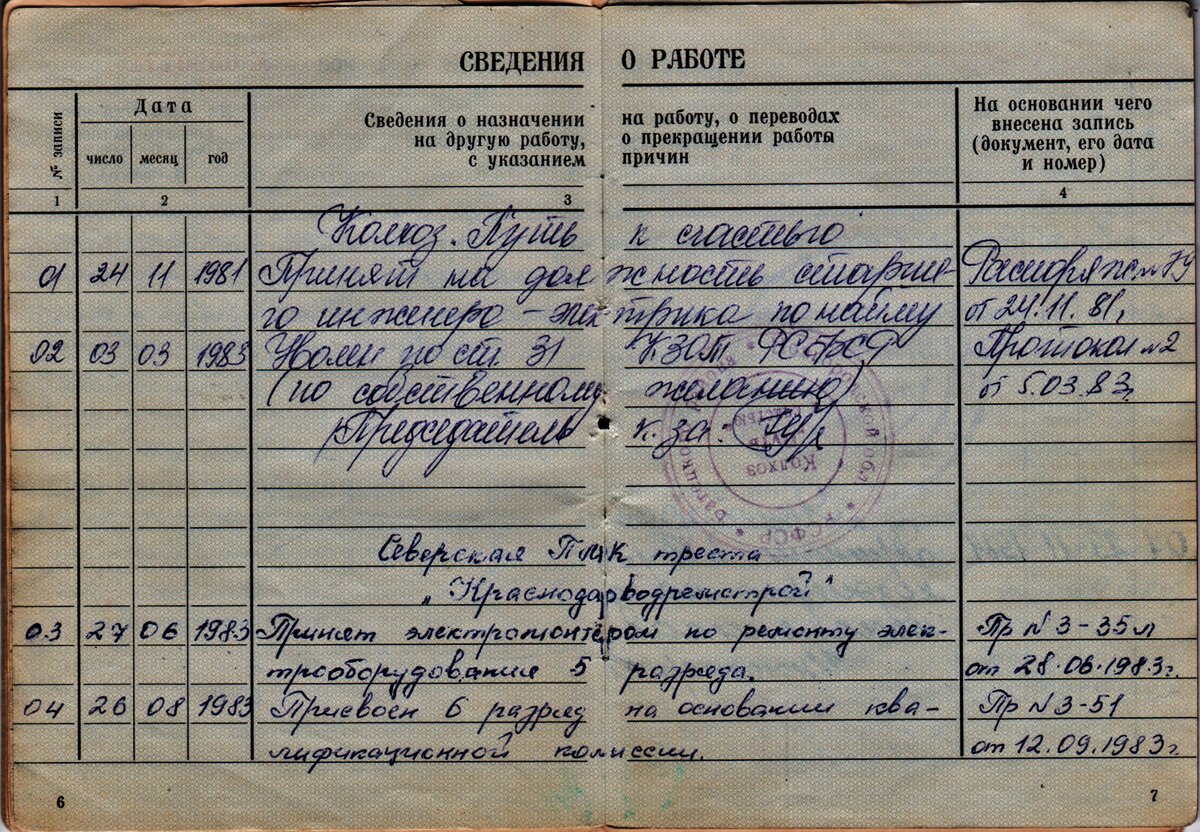 СВЕДЕНИЯ О РАБОТЕ
№ записи
Дата
число месяц год
Сведения о назначении на работу, о переводах
на другую работу, о прекращении работы
с указанием причин
На основании чего
внесена запись
(документ, его дата
и номер)
1 2 3 4
Колхоз "Путь к счастью
01 24 11 1981 Принят на должность старше- Распоряж №
го инженера-электрика по найму от 24.11.81,
02 03 03 1983 Уволен по ст. 31 КЗОТ РСФСР Протокол №2
(по собственному желанию) от 5.03.83г.
Председатель к.за:
Колхоз
Северская ПМК треста
"Краснодарводремстрой"
03 27 06 1983 Принят электромонтёром по ремонту элек- Пр N 3-35л
трооборудования 5 разряда. от 28.06.1983г.
04 26 08 1983 Присвоен 6 разряд на основании ква- Пр N 3-51
лификационной комиссии. от 12.09.1983г
6 7